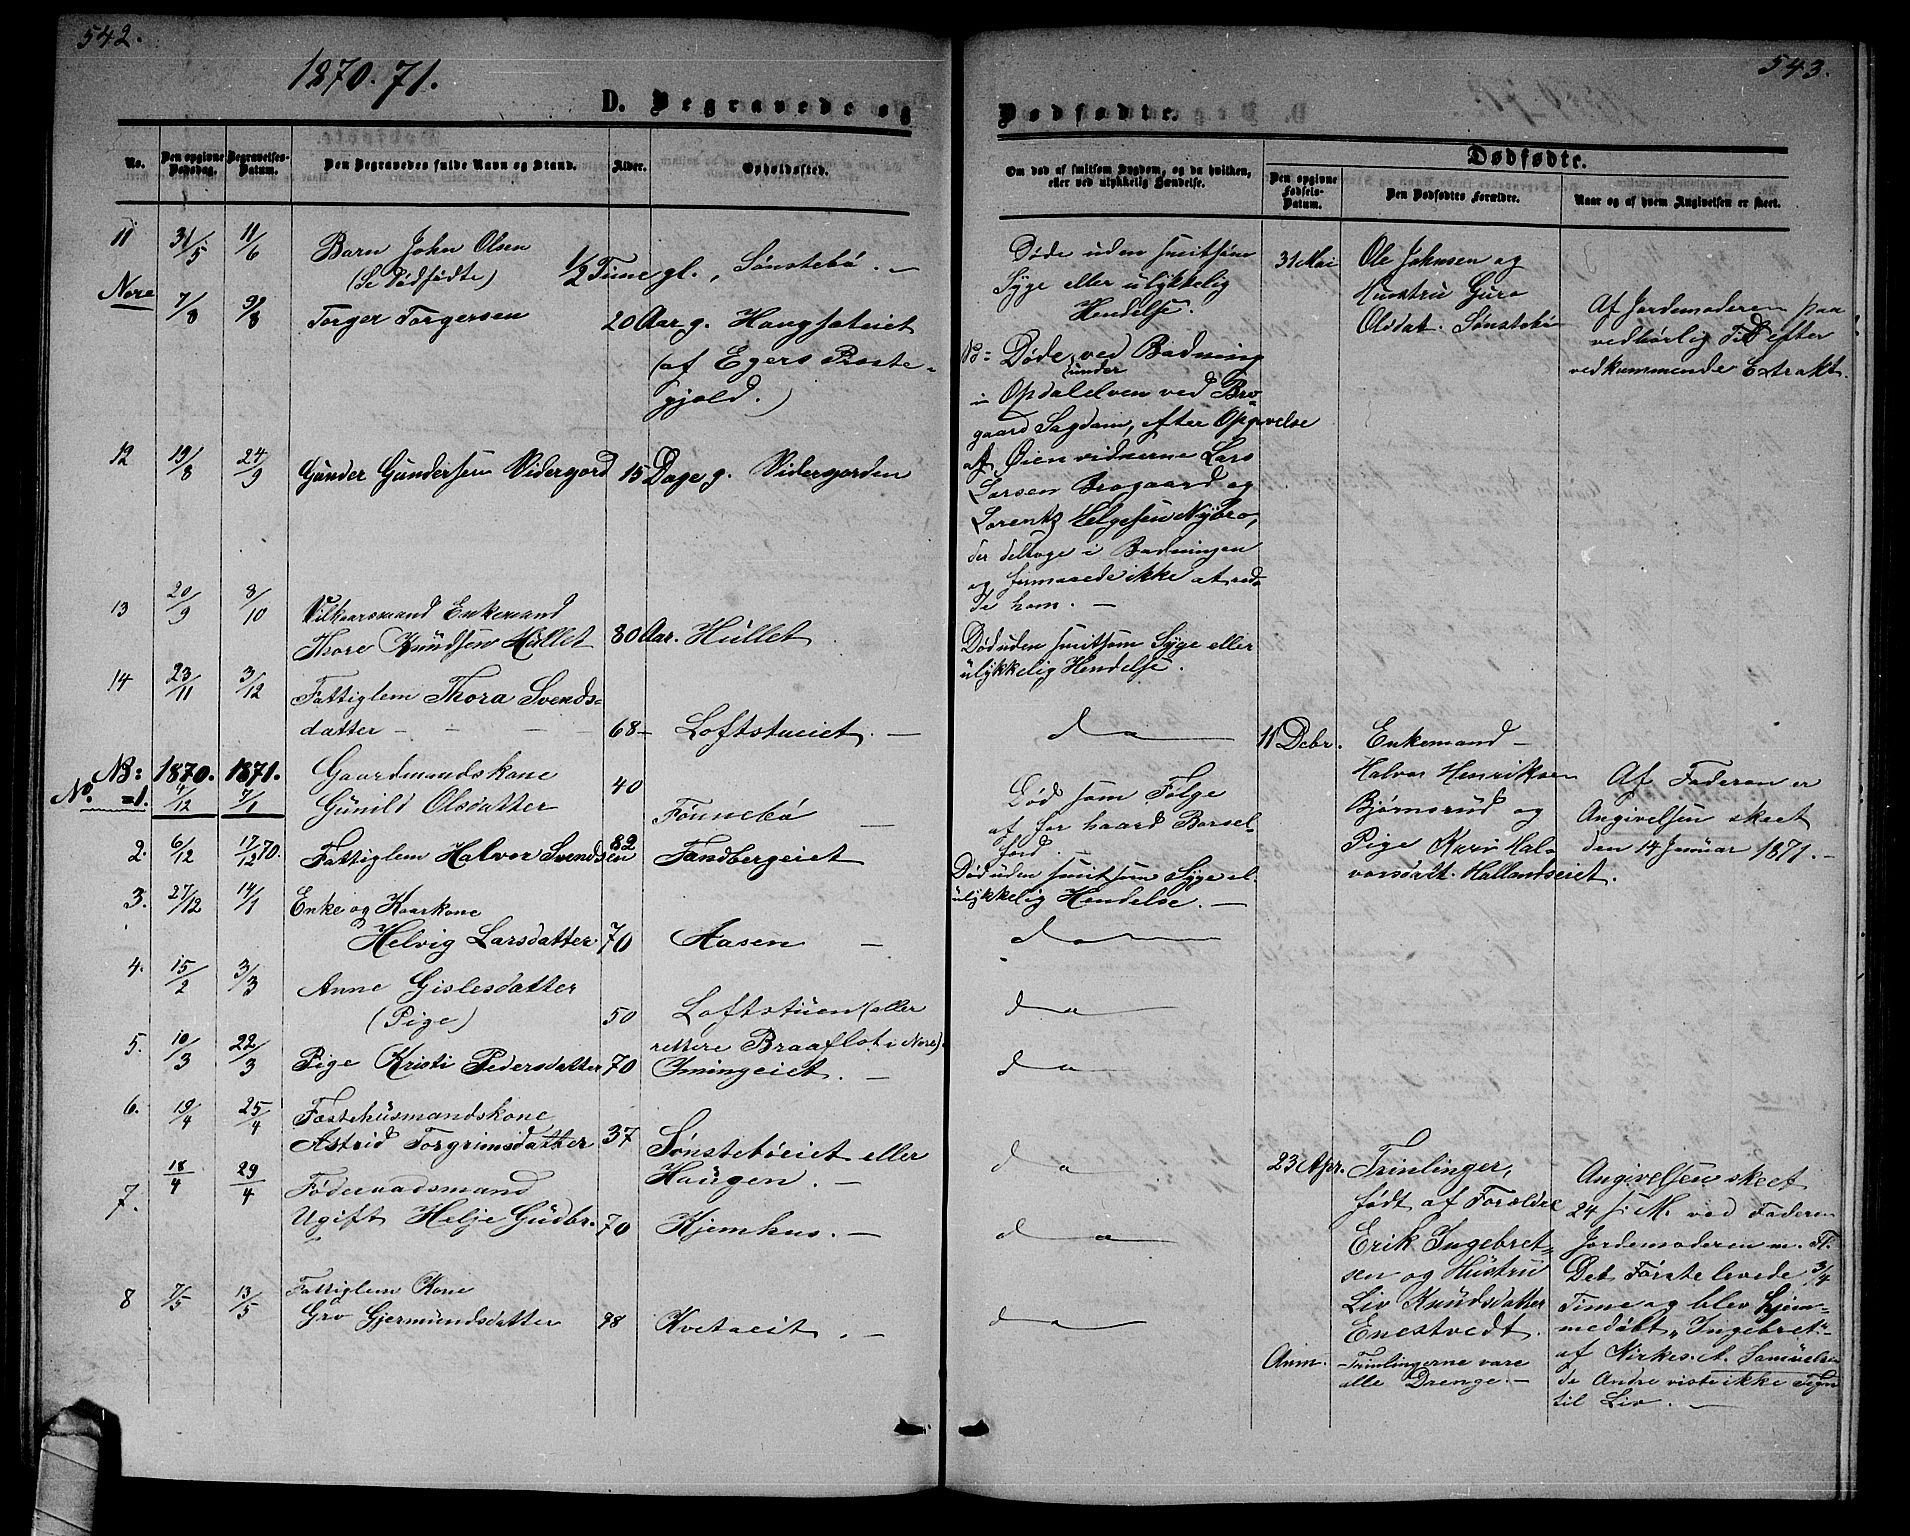 542.
1870. 71.
D. Begravede og
No.
Den opgivne Dødsdag.
Begravelses-Datum.
Den Begravedes fulde Navn og Stand.
Alder.
Opholdssted.
11 31/5 11/6 Barn John Olsen
(Se Dødfødte) 1/2 Time gl., Sønstebø. —
Nore
7/8 9/8 Torger Torgersen 20 Aar g. Haugsateiet
(af Egers Præste-
gjeld.)
12 19/8 24/9 Gunder Gundersen Vidergord 15 Dage g. Vidergorden
13 20/9 8/10 Vilkaarsmand Enkemand
Thore Knudsen Hullet 80 Aar. Hullet
14 23/11 3/12 Fattiglem Thora Svends-
datter — — — — 68 — Loftstueiet. —
NB: 1870. 1871. Gaardmandskone
No. =1. 4/12 7/1 Gunild Olsdatter 40 Fønnebø —
2. 6/12 17/12 70. Fattiglem Halvor Svendsen 82 Tandbergeiet
3. 27/12 14/1 Enke og Kaarkone
Helvig Larsdatter 70 Aasen —
4. 15/2 3/3 Anne Gislesdatter
(Pige) 50 Loftstuen (eller
rettere Braaflot i Nore).
5. 10/3 22/3 Pige Kristi Pedersdatter 70 Imingeiet. —
6. 19/4 25/4 Fæstehusmandskone
Astrid Torgrimsdatter 37 Sønstebøeiet eller
Haugen. —
7. 18/4 29/4 Føderaadsmand
Ugift Helje Gudbr. 70 Kjemhus. —
8 7/5 13/5 Fattiglem Kone
Gro Gjermundsdatter 98 Kvetaeit. —
543.
Dødfødte.
Om død af smitsom Sygdom, og da hvilken,
eller ved ulykkelig Hændelse.
Dødfødte.
Den opgivne Fødsels-Datum.
Den Dødfødtes Forældre.
Naar og af hvem Angivelsen er skeet.
Døde uden smitsom
Syge eller ulykkelig
Hendelse.
Døde ved Badning
under
i Opdalelven ved Bro-
gaard Sagdam, efter Opgivelse
af Øienvidnerne Lars
Larsen Brogaard og
Lorentz Helgesen Nybro,
der deltoge i Badningen
og formaaede ikke at red-
de ham. —
Død uden smitsom Syge eller
ulykkelig Hendelse.
da
Død som Følge
af for haard Barsel-
ford. —
Død uden smitsom Syge el.
ulykkelig Hendelse. —
da
da
da
da
da
da
31 Mai Ole Johnsen og
Hustru Guro
Olsdat. Sønstebø
Af Jordemoderen paa
vedbørlig Tid efter
vedkommende Extrakt.
11 Debr. Enkemand —
Halvor Henriksen
Bjørnsrud og
Pige Kari Hal-
vorsdatt. Hallandseiet.
Af Faderen er
Angivelsen skeet
den 14 Januar 1871. —
23 Apr. Trinlinger,
født af Forældre
Erik Ingebret-
sen og Hustru
Liv Knudsdatter
Enestvedt.
Anm. Trinlingerne vare
alle Drenge. —
Angivelsen skeet
24 s. M. ved Faderen
Jordemoderen m. Fl.
Det Første levede 3/4
Time og blev hjem-
medøbt "Ingebret"
af Kirkes. A. Samuelsen
de Andre viste ikke Tegn
til Liv. —